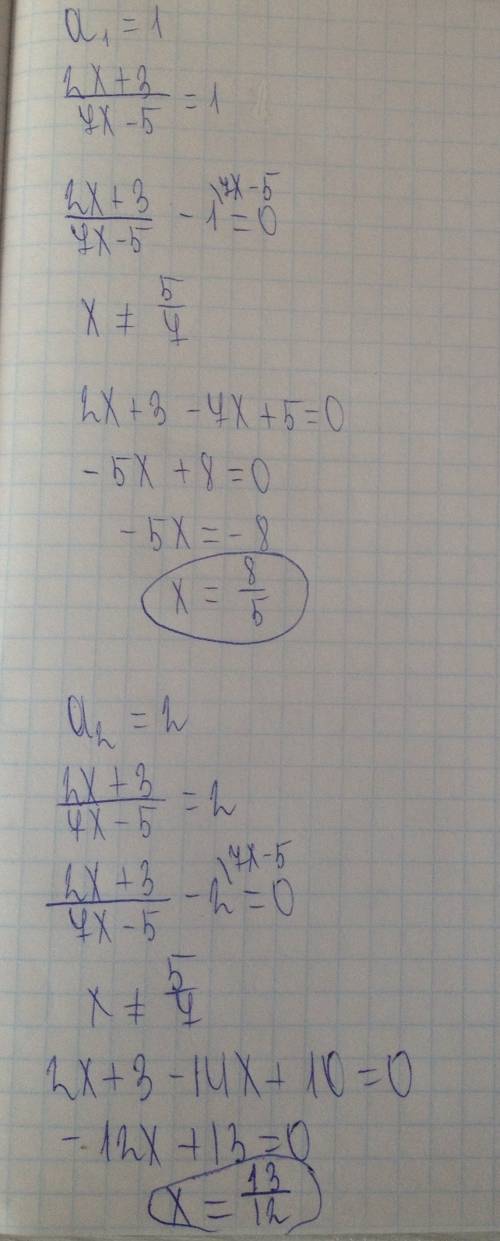 a₁ = 1
(2x+3)/(7x−5) = 1
(2x+3)/(7x−5) − 1^\(7x−5) = 0
x ≠ 5/7
2x+3 −7x+5=0
−5x +8=0
−5x = −8
x = 8/5
a₂ = 2
(2x+3)/(7x−5) = 2
(2x+3)/(7x−5) − 2^\(7x−5) = 0
x ≠ 5/7
2x+3 −14x+ 10 =0
−12x +13 =0
x = 13/12